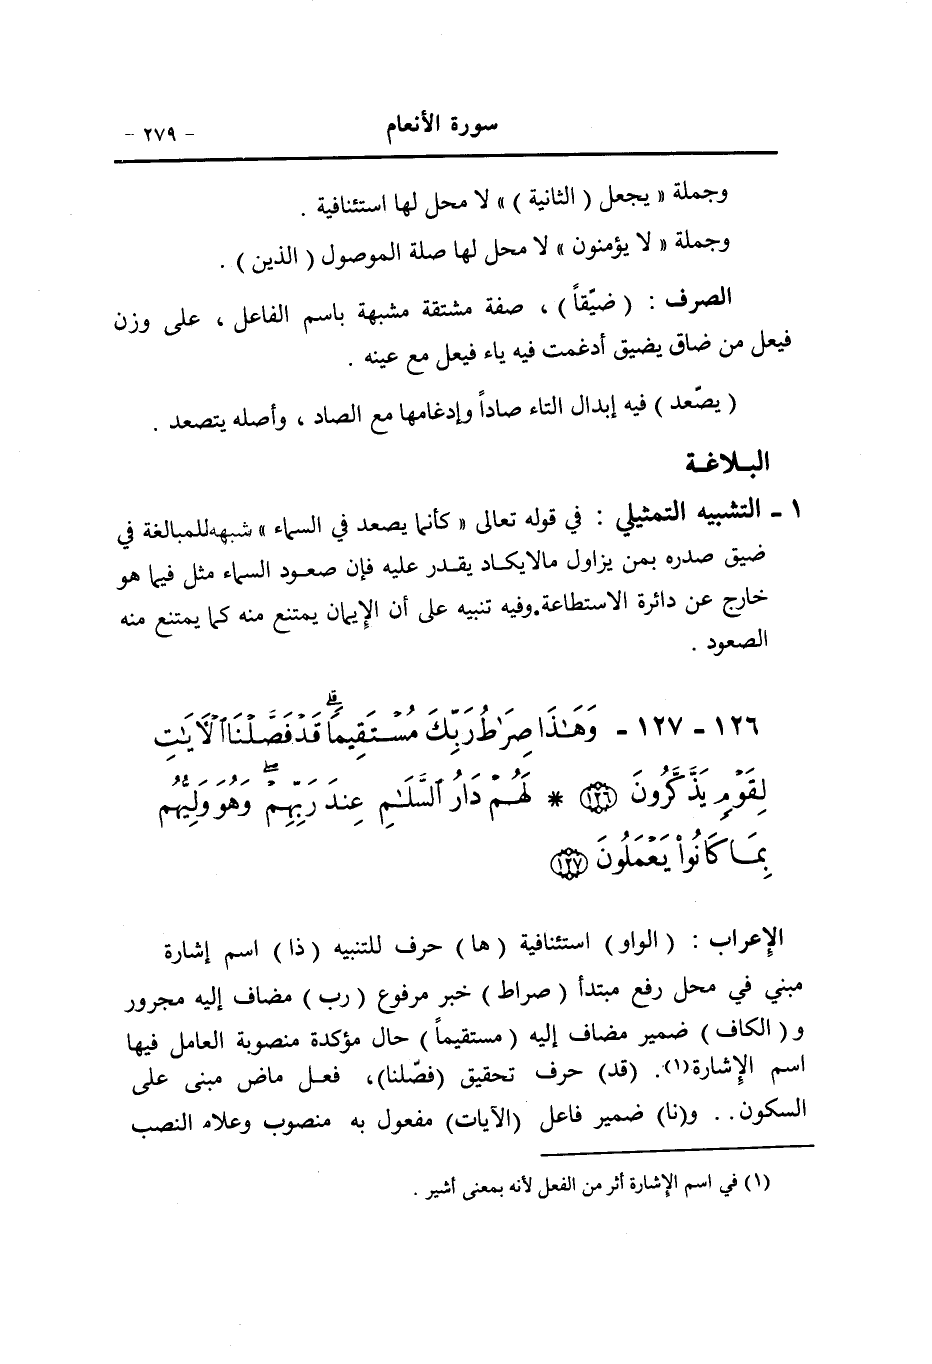 سورة الأنعام - ٢٧٩ -
وجملة « يجعل ( الثانية ) » لا محل لها استئنافية .
وجملة « لا يؤمنون » لا محل لها صلة الموصول ( الذين ) .
الصرف : ( ضيّقاً ) ، صفة مشتقة مشبهة باسم الفاعل ، على وزن
فيعل من ضاق يضيق أدغمت فيه ياء فيعل مع عينه .
( يصّعد ) فيه إبدال التاء صاداً وإدغامها مع الصاد ، وأصله يتصعد .
البـلاغـة
١ ـ التشبيه التمثيلي : في قوله تعالى « كأنما يصعد في السماء » شبهه للمبالغة في
ضيق صدره بمن يزاول مالايكـاد يقـدر عليه فإن صعـود السماء مثل فيما هو
خارج عن دائرة الاستطاعة.وفيه تنبيه على أن الإيمان يمتنع منه كما يمتنع منه
الصعود .
١٢٦ ـ ١٢٧ ـ وَهَـٰذَا صِرَٰطُ رَبِّكَ مُسْتَقِيمًا ۗ قَدْ فَصَّلْنَا ٱلْـَٔايَـٰتِ
لِقَوْمٍ يَذَّكَّرُونَ ﴿١٢٦﴾ * لَهُمْ دَارُ ٱلسَّلَـٰمِ عِندَ رَبِّهِمْ ۖ وَهُوَ وَلِيُّهُم
بِمَا كَانُوا۟ يَعْمَلُونَ ﴿١٢٧﴾
الإعراب : ( الواو) استئنافية ( ها ) حرف للتنبيه ( ذا ) اسم إشارة
مبني في محل رفع مبتدأ ( صراط ) خبر مرفوع ( رب ) مضاف إليه مجرور
و ( الكاف ) ضمير مضاف إليه ( مستقيماً ) حال مؤكدة منصوبة العامل فيها
اسم الإشارة(١). (قد) حرف تحقيق (فصّلنا)، فعـل ماض مبنى على
السكون.. و(نا) ضمير فاعل (الآيات) مفعول به منصوب وعلامه النصب
(١) في اسم الإشارة أثر من الفعل لأنه بمعنى أشير .